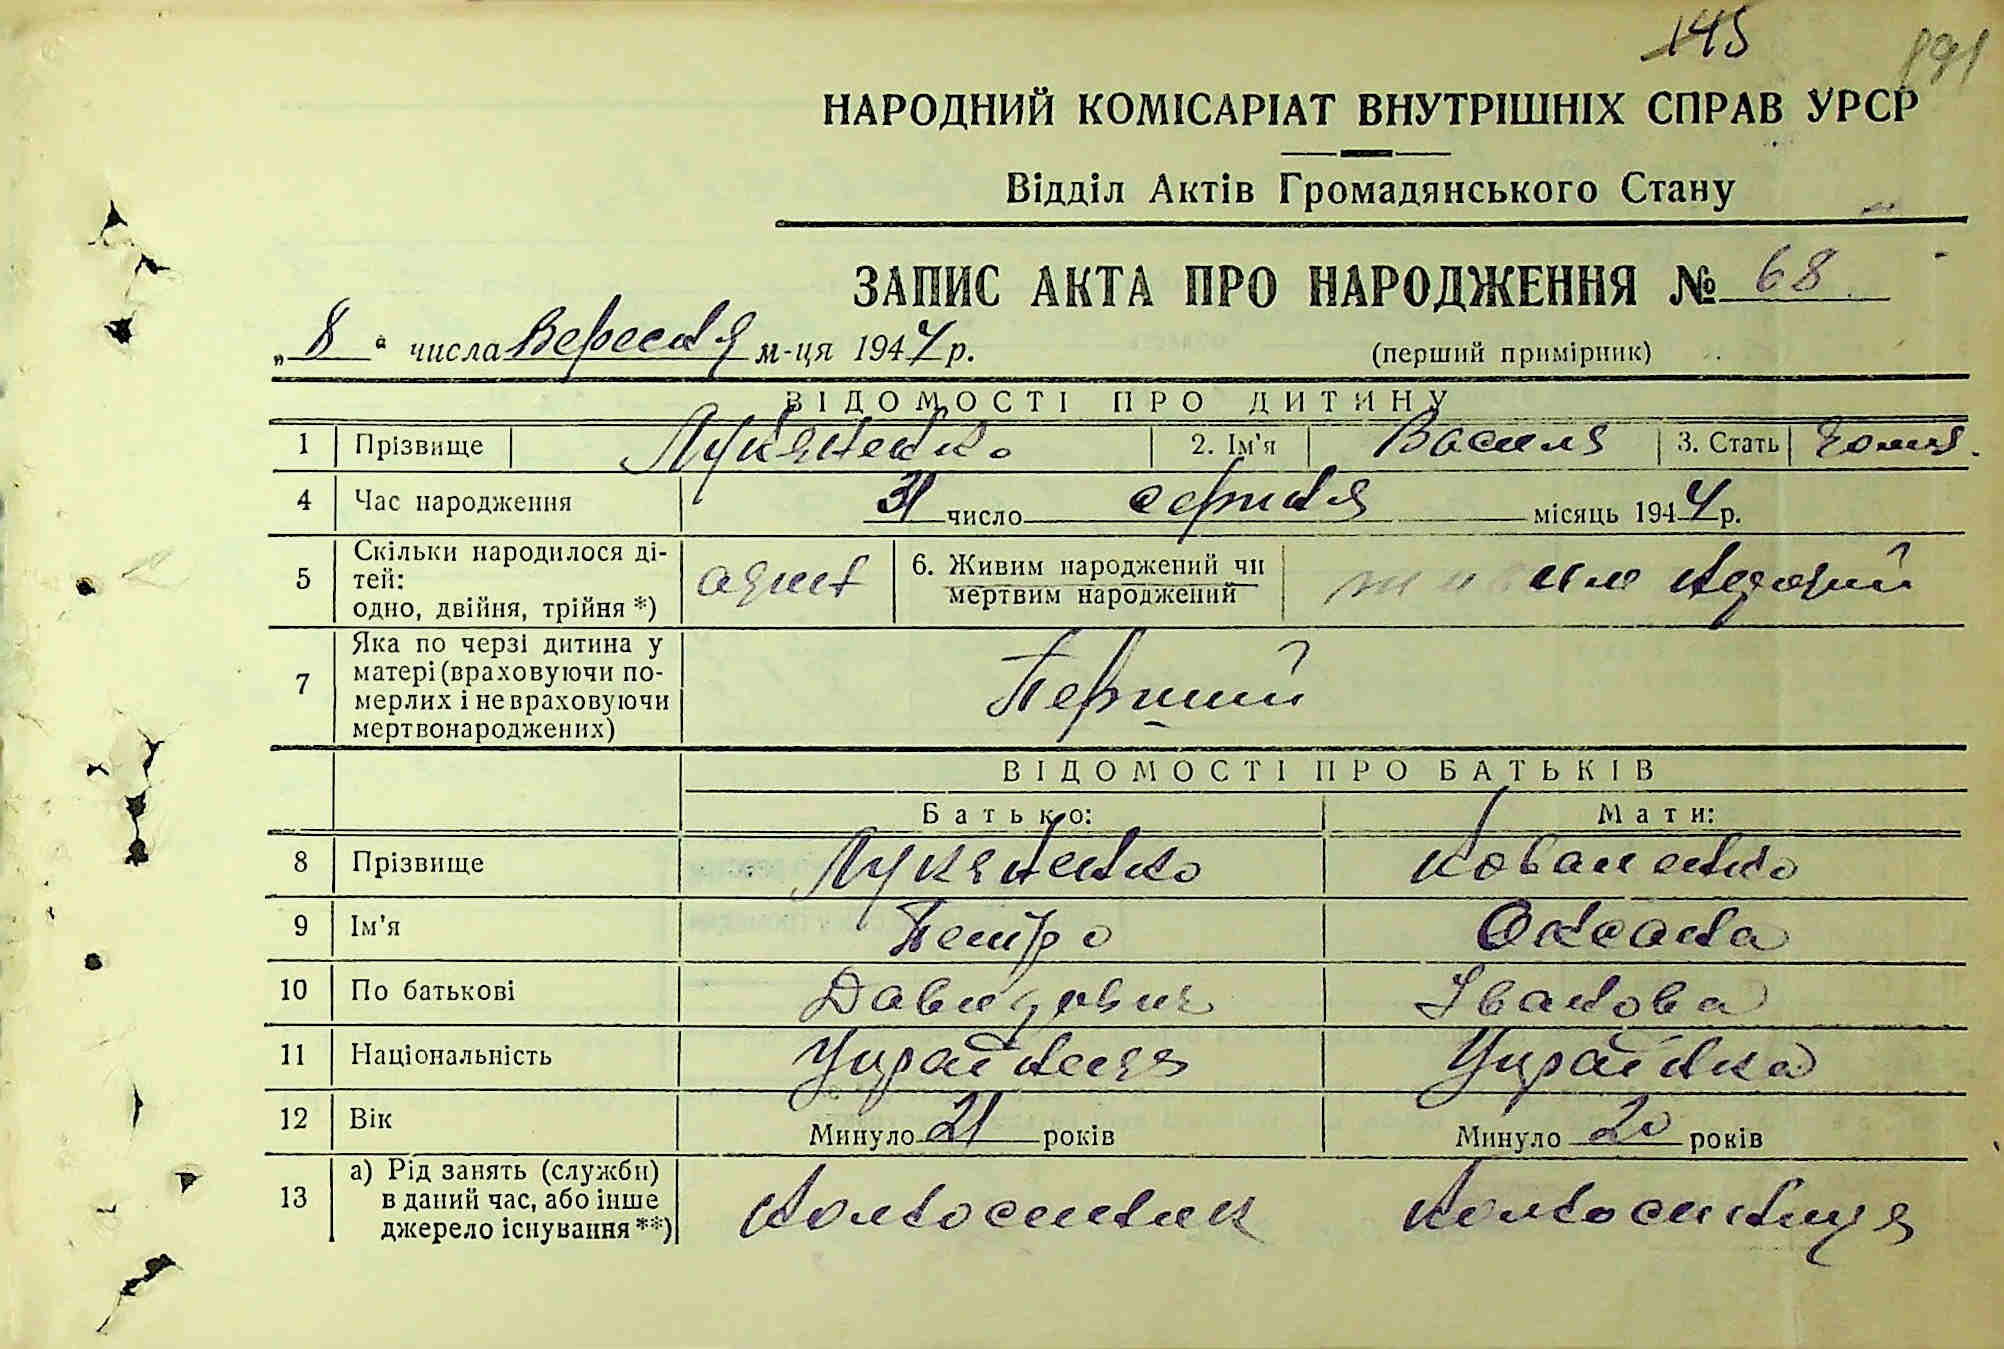 145
191
НАРОДНИЙ КОМІСАРІАТ ВНУТРІШНІХ СПРАВ УРСР
Відділ Актів Громадянського Стану
ЗАПИС АКТА ПРО НАРОДЖЕННЯ № 68
„ 8 “ числа Вересня м-ця 1944 р. (перший примірник)
ВІДОМОСТІ ПРО ДИТИНУ
1 Прізвище Лукяненко 2. Ім'я Василя 3. Стать
4 Час народження 31 число серпня місяць 1944 р.
5 Скільки народилося ді-
тей:
одно, двійня, трійня *) 6. Живим народжений чи
мертвим народжений
7 Яка по черзі дитина у
матері (враховуючи по-
мерлих і не враховуючи
мертвонароджених) Перший
ВІДОМОСТІ ПРО БАТЬКІВ
Батько: Мати:
8 Прізвище Лукяненко Коваленко
9 Ім'я Петро Оксана
10 По батькові Давидович Іванова
11 Національність Українець Українка
12 Вік Минуло 21 років Минуло 20 років
13 а) Рід занять (служби)
в даний час, або інше
джерело існування **) Колхосник Колхосниця